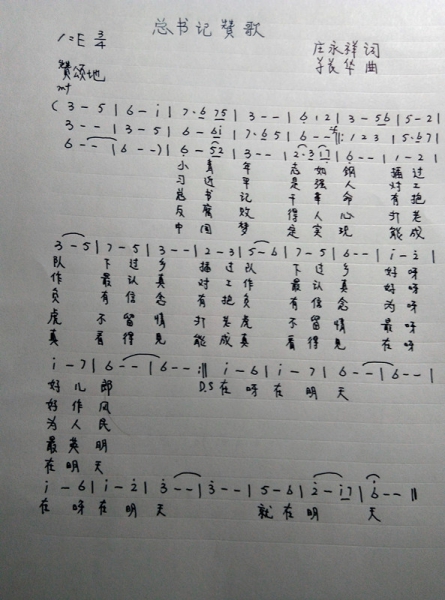 总书记赞歌
1=E 3/4
庄永祥 词
华 曲
赞颂地
mf
( 3 - 5 | 6 - i | 7· 6 7 5 | 3 - - | 6 · 1 2 | 3 - 5 6 | 5 - 2 |
3 - - | 3 - 5 | 6 - 6 i | 7· 6 5 | 6 - - 𝄋 ‖: 1 2 3 | 5· 6 7 |
6 - - | 6 - - ) | 6 - 5 2 | 3 - - | 2· 3 i 7 | 6 - - | 1 - 2 |
小青年 志如钢 插过
习近平 是强人 对工
总书记 干革命 有把
反腐败 得人心 打老
中国梦 定实现 能成
3 - 5 | 7 - 5 | 3 - - | 2 - 3 | 5 - 6 | 7 - 5 | 6 - - | i - i |
队 下过乡 插过队 下过乡 好呀
作 最认真 对工作 最认真 好呀
负 有信念 有把负 有信念 为呀
虎 不留情 打老虎 不留情 最呀
真 看得见 能成真 看得见 在呀
i - 7 | 6 - - | 6 - - :‖ i - 6 | i - 7 | 6 - - | 6 - - |
好儿郎 D.S 在呀在明天
好作风
为人民
最英明
在明天
i - 6 | i - 2 | 3 - - | 3 - - | 5 - 6 | 2 - i 7 | 6 - - ‖
在呀在明天 就在明天